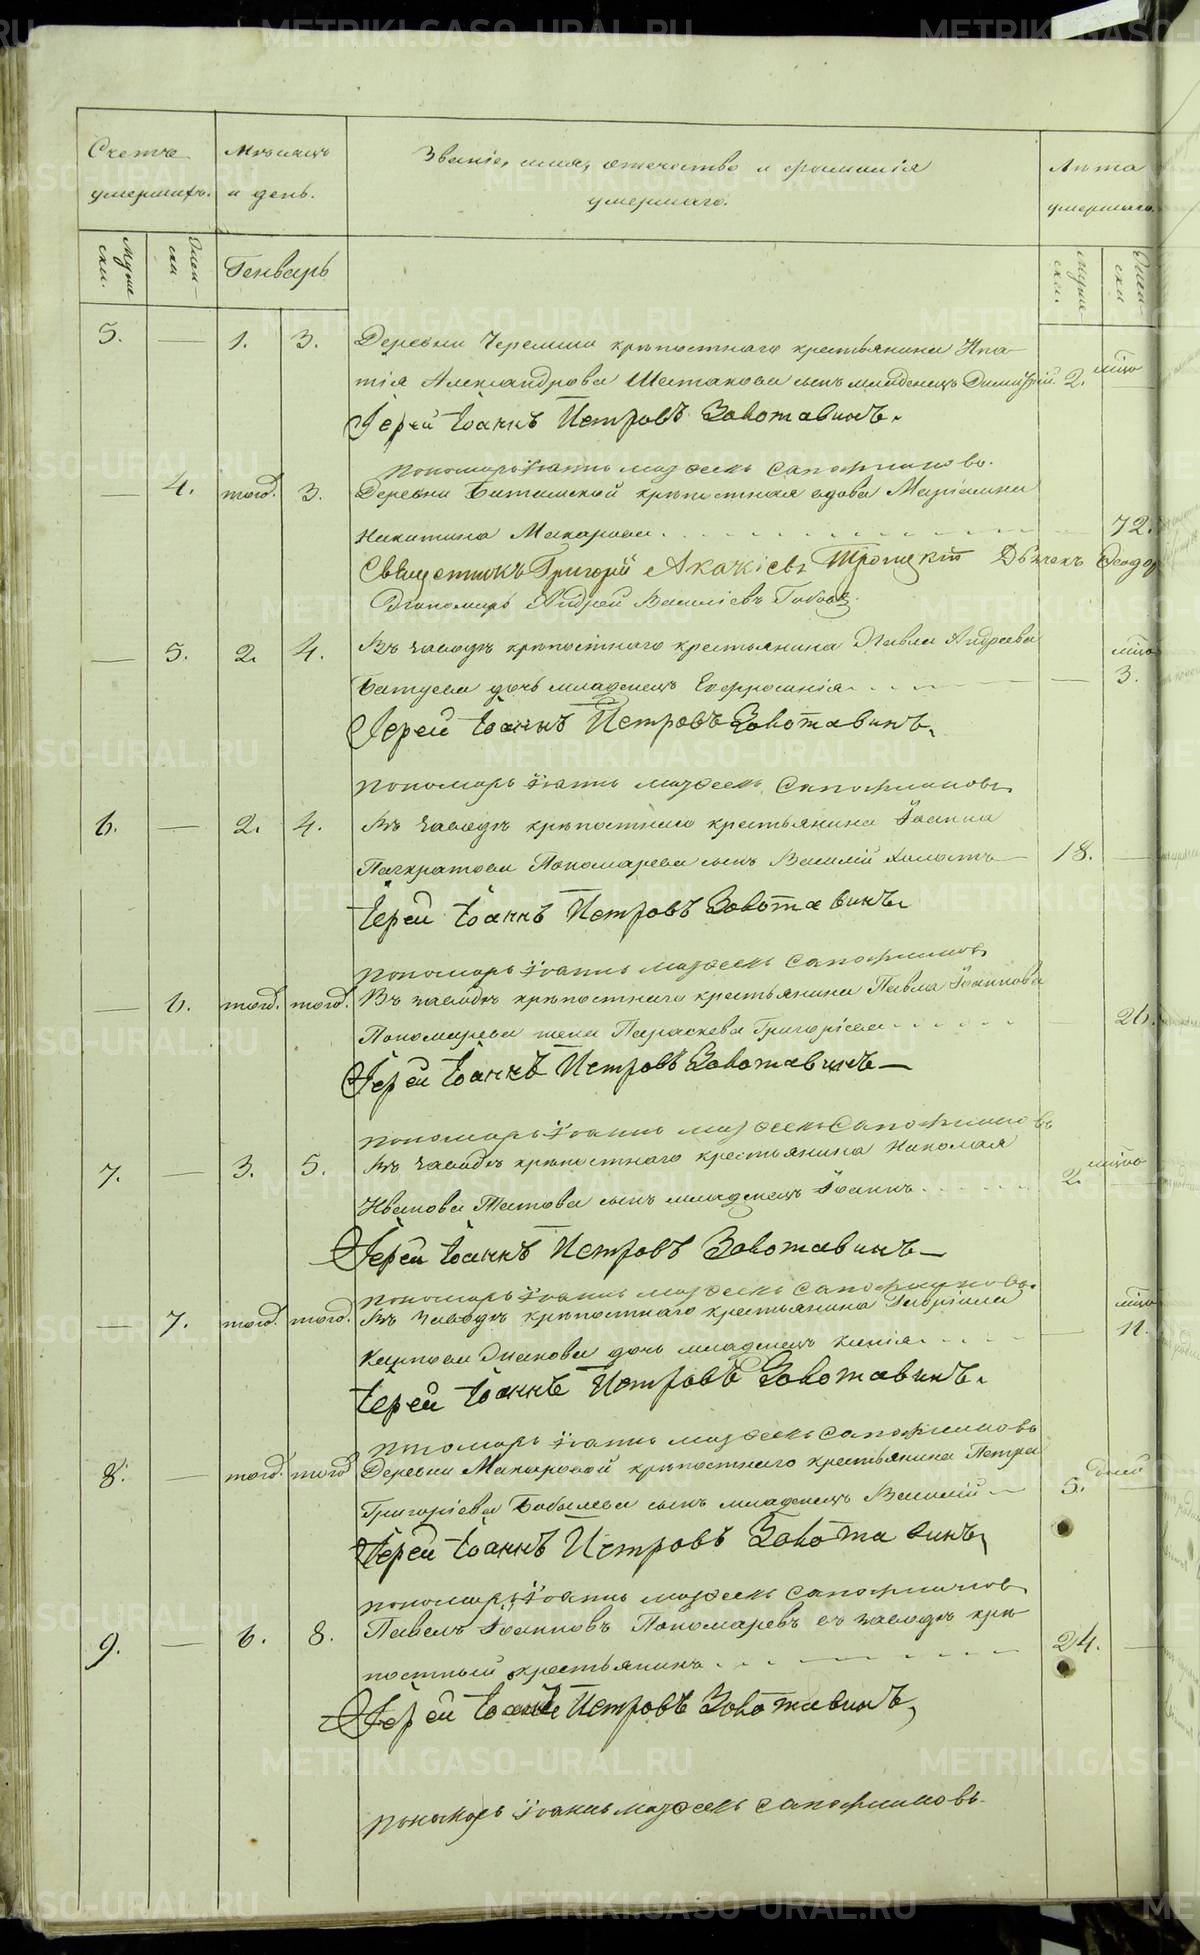 Счетъ умершихъ.
Мѣсяцъ и день.
Званіе, имя, отчество и фамилія умершаго.
Лѣта умершаго.
Муже-ски.
Жен-ски
Генварь
Муже-ски.
Жен-ски
5. — 1. 3. Деревни Черемши крѣпостнаго крестьянина Ипа-
тія Александрова Шестакова сынъ младенецъ Димитрій. 2. мѣс.
Іерей Іоаннъ Петровъ Золотавинъ.
пономарь Іоаннъ Сапожниковъ.
— 4. тогож. 3. Деревни крѣпостная вдова Маріамна
Никитина Макарова. 72.
Священникъ Григорій Акакіевъ Троицкій Дьячекъ Феодор
Пономарь Андрей Василіевъ
— 5. 2. 4. Въ заводѣ крѣпостнаго крестьянина Павла Андреева
Батуева дочь младенецъ Евфросинія. — мѣс. 3.
Іерей Іоаннъ Петровъ Золотавинъ.
пономарь Іоаннъ Сапожниковъ
6. — 2. 4. Въ заводѣ крѣпостнаго крестьянина Іоанна
Панкратова Пономарева сынъ Василій холостъ 18. —
Іерей Іоаннъ Петровъ Золотавинъ
пономарь Іоаннъ Сапожниковъ
— 6. тогож. тогож. Въ заводѣ крѣпостнаго крестьянина Павла Іоаннова
Пономарева жена Параскева Григоріева 26.
Іерей Іоаннъ Петровъ Золотавинъ
пономарь Іоаннъ Сапожниковъ
7. — 3. 5. Въ заводѣ крѣпостнаго крестьянина Николая
Иванова Титова сынъ младенецъ Іоаннъ. 2. мѣс.
Іерей Іоаннъ Петровъ Золотавинъ
пономарь Іоаннъ Сапожниковъ.
— 7. тогож. тогож. Въ заводѣ крѣпостнаго крестьянина Гавріила
Карпова дочь младенецъ Ксенія. — мѣс. 11.
Іерей Іоаннъ Петровъ Золотавинъ.
пономарь Іоаннъ Сапожниковъ
8. — тогож. тогож Деревни Макаровой крѣпостнаго крестьянина Петра
Григоріева Бобылева сынъ младенецъ Василій 5. дней —
Іерей Іоаннъ Петровъ Золотавинъ
пономарь Іоаннъ Сапожниковъ
9. — 6. 8. Павелъ Іоанновъ Пономаревъ въ заводѣ крѣ-
постный крестьянинъ. 24. —
Іерей Іоаннъ Петровъ Золотавинъ
пономарь Іоаннъ Сапожниковъ.
METRIKI.GASO-URAL.RU